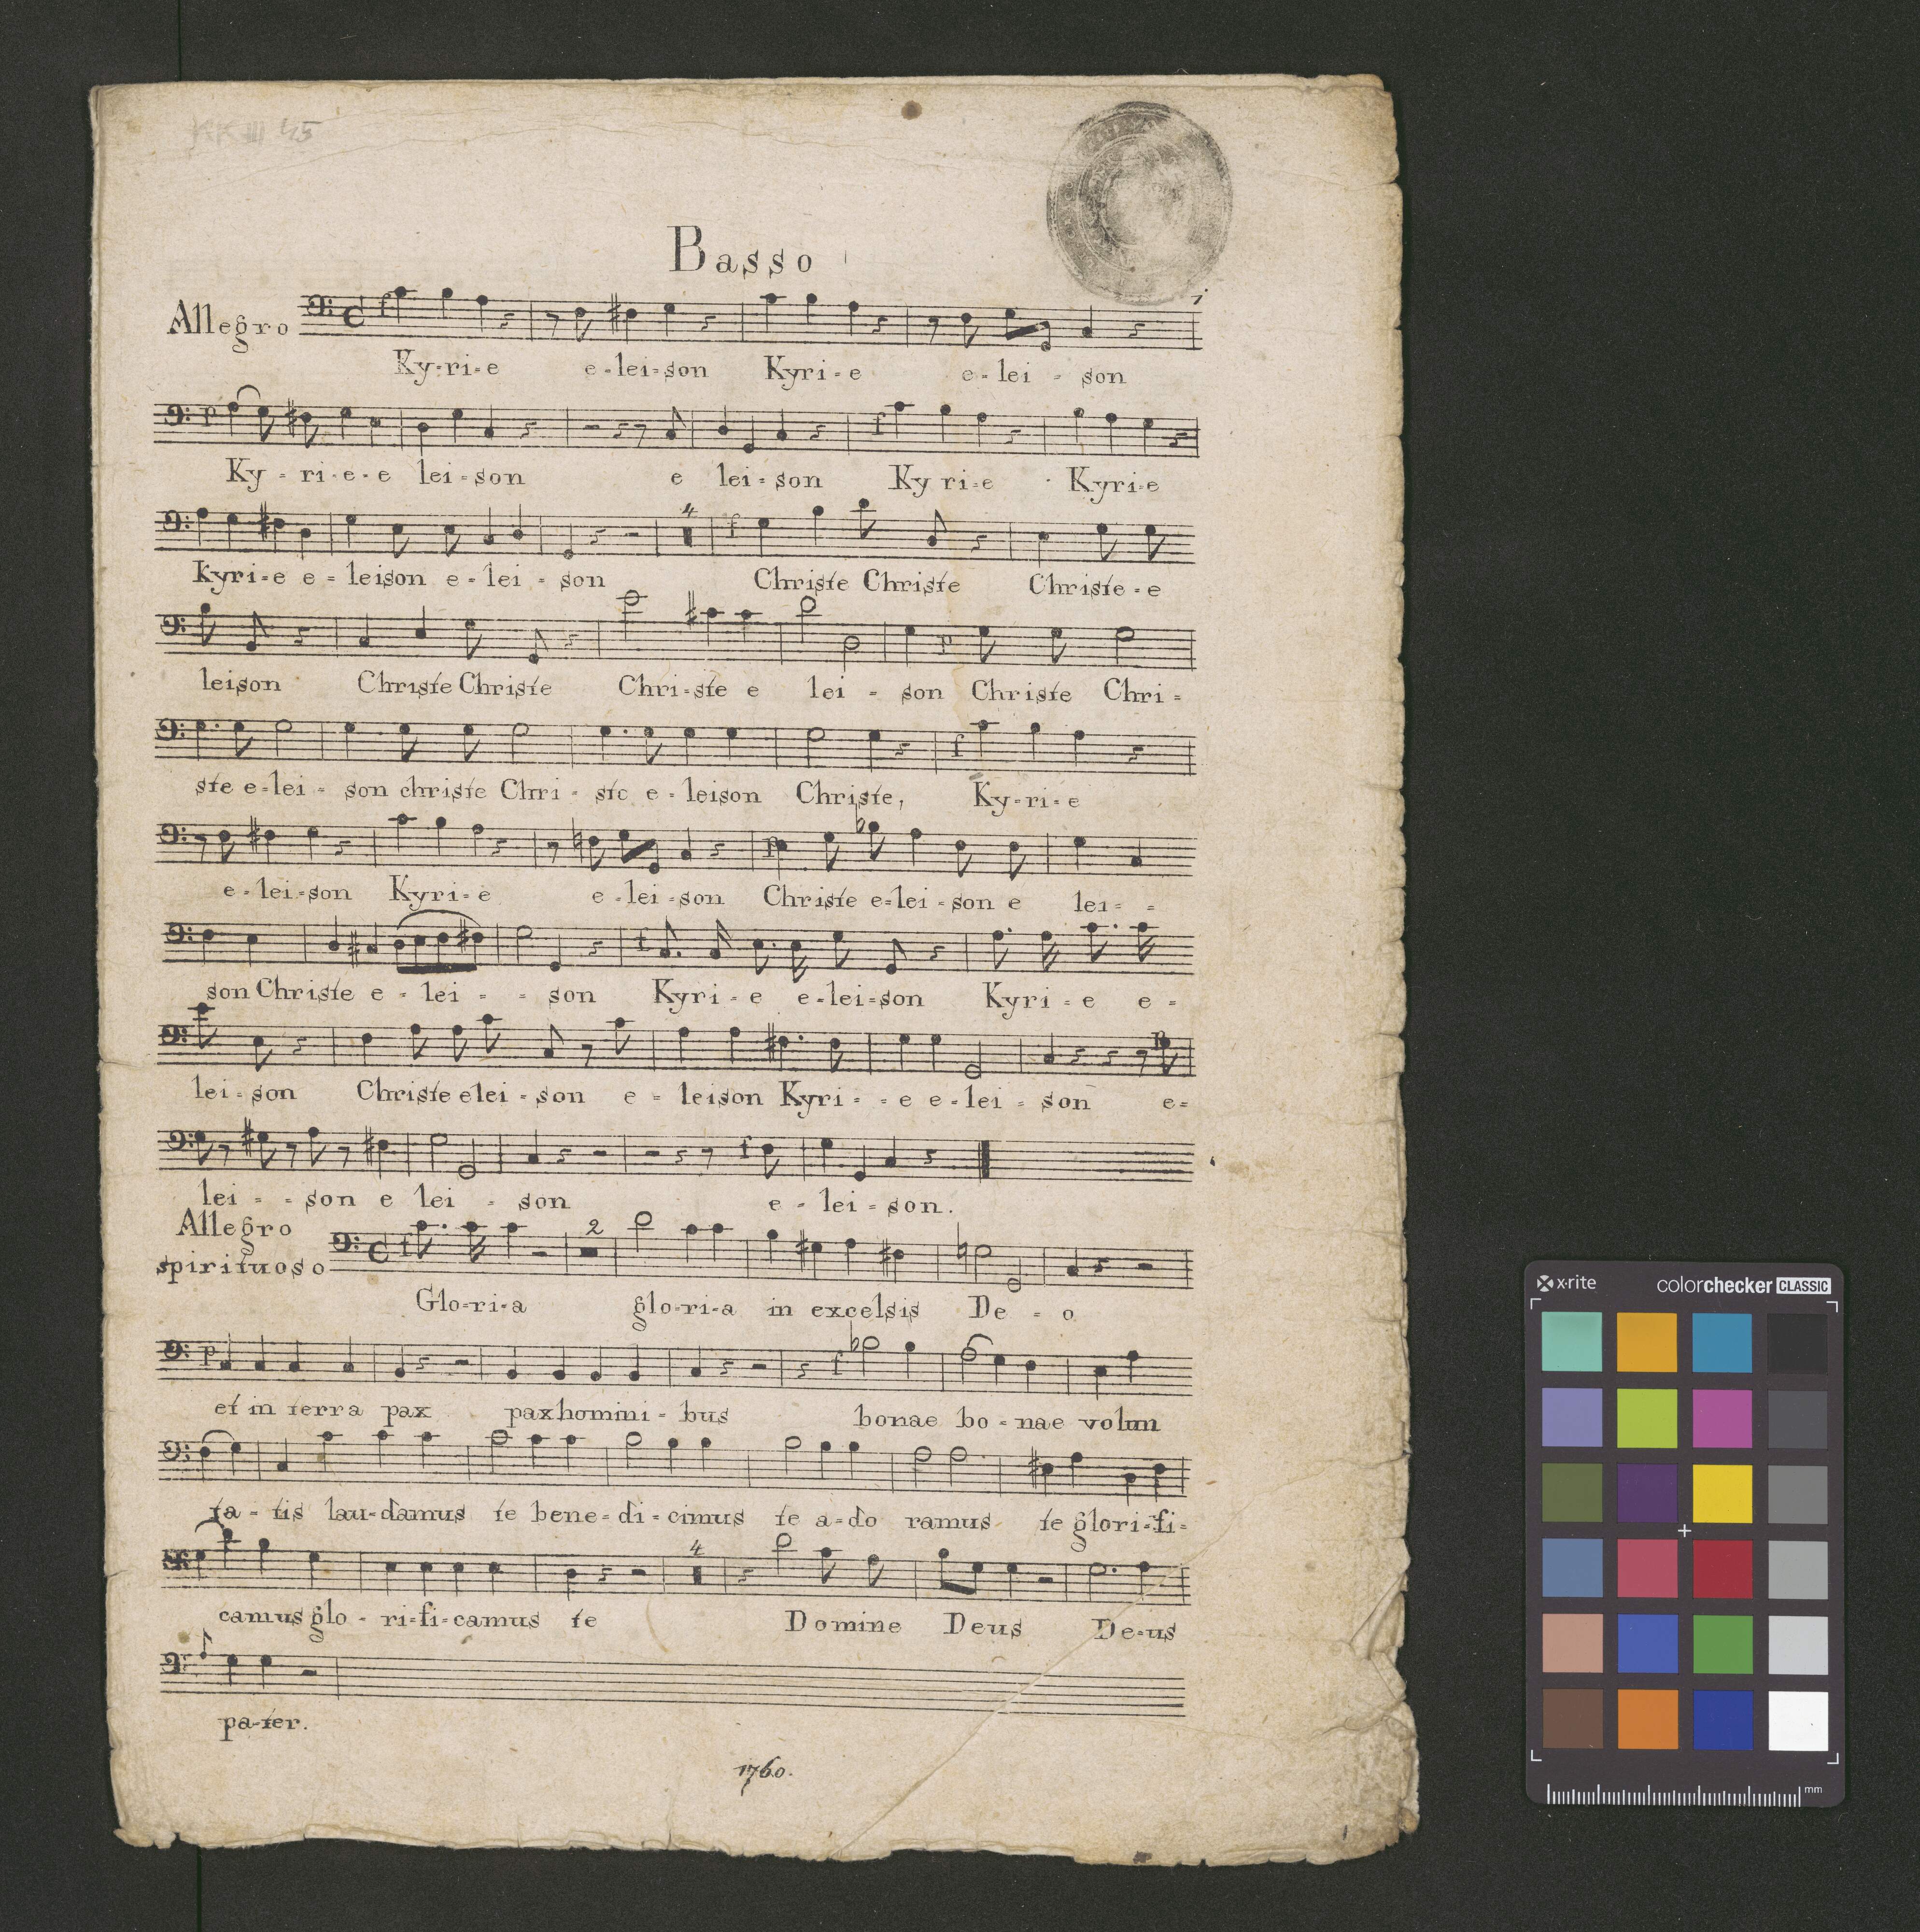 KK III 45
Basso
1
Allegro
Ky-ri-e e-lei-son Kyri-e e-lei - son
Ky - ri-e-e lei-son e lei-son Ky ri-e Kyri-e
Kyri-e e-leison e-lei - son Christe Christe Christe-e
leison Christe Christe Chri-ste e lei - son Christe Chri-
ste e-lei - son christe Chri - ste e-leison Christe, Ky-ri-e
e-lei-son Kyri-e e-lei-son Christe e-lei-son e lei- -
son Christe e-lei- - son Kyri-e e-lei-son Kyri-e e-
lei-son Christe elei-son e-leison Kyri- -e e-lei-son e-
lei- -son e lei - son e-lei-son.
Allegro
spirituoso
2
Glo-ri-a glo-ri-a in excelsis De - o
et in terra pax pax homini-bus bonae bo-nae volun
ta-tis lau-damus te bene-di-cimus te a-do ramus te glori-fi-
4
camus glo-ri-fi-camus te Domine Deus De-us
pa-ter.
1760.
x-rite colorchecker CLASSIC
mm